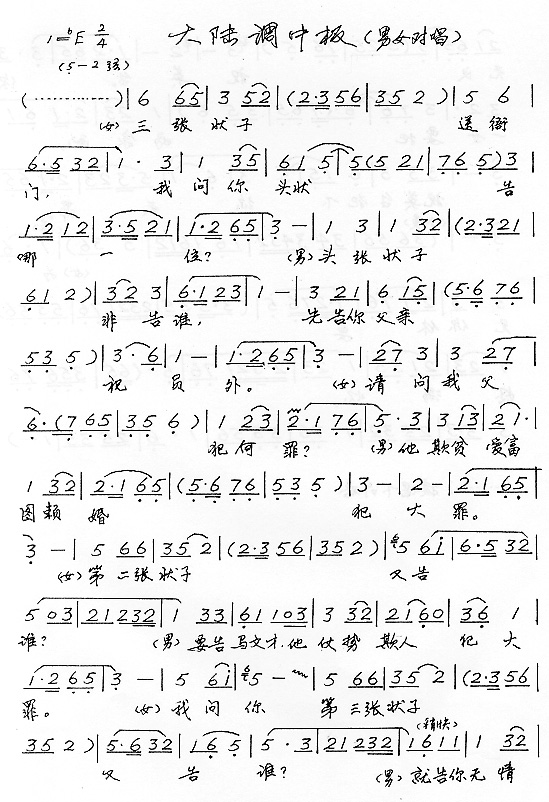 1=♭E 2/4 大陆调中板(男女对唱)
(5-2弦)
(············)| 6 65 | 3 52 |(2·356|352)| 5 6 |
(女)三张状子 送衙
6·532|1· 3|1 35|61 5|5(5 21|76 5)3|
门, 我问你头状 告
1·212|3·521|1·265|3-|1 3|1 32|(2·321|
哪一位? (男)头张状子
61 2)|32 3|6·123|1-|3 21|6 15|(5·6 76|
非告谁, 先告你父亲
53 5)|3·6|1-|1·265|3-|27 3|3 27|
祝员外。 (女)请问我父
6·(7 65|35 6)|1 23|2·1 76|5·3|3 13|21·|
犯何罪? (男)他欺贫爱富
1 32|2·1 65|(5·6 76|535)|3-|2-|2·1 65|
图赖婚 犯大罪。
3-|5 66|35 2|(2·356|352)|5 6i|6·532|
(女)第二张状子 又告
5 03|21232|1 33|61 103|3 32|2160|36 1|
谁? (男)要告马文才,他仗势欺人犯大
1·265|3-|5 6i|5-|5 66|35 2|(2·356|
罪。 (女)我问你 第三张状子
(稍快)
352)|5·632|16 5|5·3|21232|1611|1 32|
又告谁? (男)就告你无情